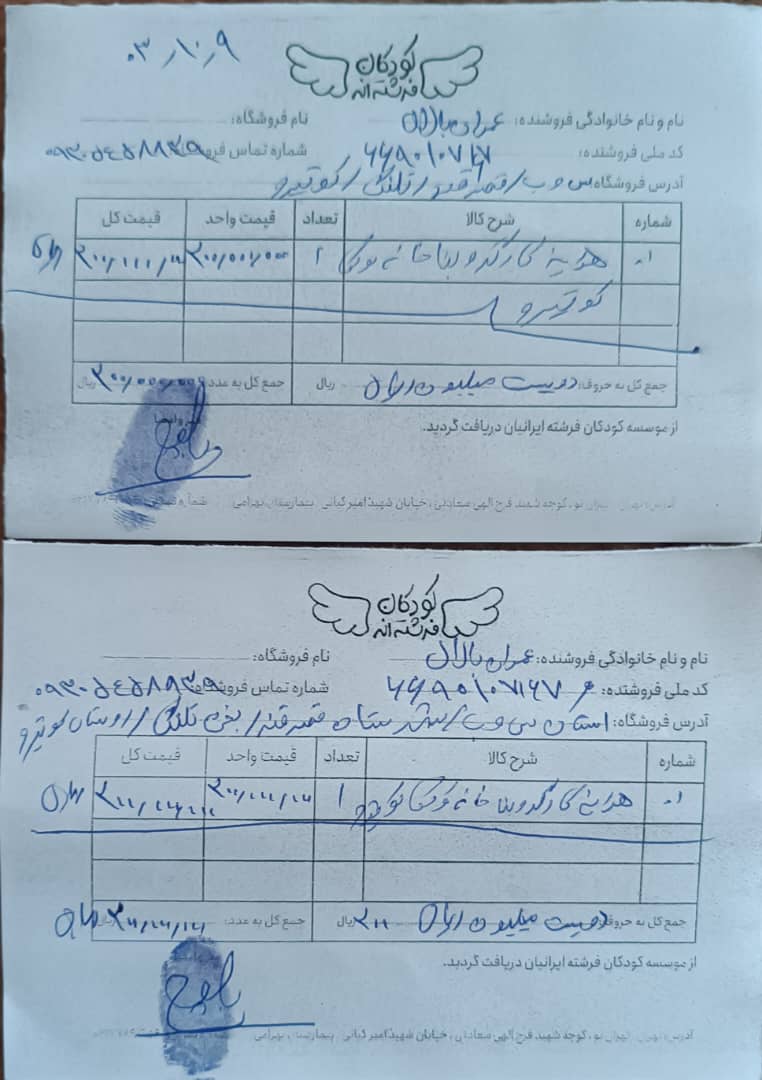 ۰۳/۱۰/۹
کودکان
فرشته‌اند
نام و نام خانوادگی فروشنده: عمران بالال نام فروشگاه:
کد ملی فروشنده: شماره تماس فروشگاه:
آدرس فروشگاه: س و ب / قصرقند / تلنگ / کوتیرو
شماره شرح کالا تعداد قیمت واحد قیمت کل
۰۱ هزینه کارگر و بنا خانه ۱ ۲۰۰/۰۰۰/۰۰۰ ۲۰۰/۰۰۰/۰۰۰ ریال
کوتیرو
جمع کل به حروف: دویست میلیون ریال ریال جمع کل به عدد: ۲۰۰/۰۰۰/۰۰۰ ریال
از موسسه کودکان فرشته ایرانیان دریافت گردید.
آدرس: تهران، تهران نو، کوچه شهید فرج الهی سعادتی، خیابان شهید امیر کیانی، بیمارستان بهرامی
کودکان
فرشته‌اند
نام و نام خانوادگی فروشنده: عمران بالال نام فروشگاه:
کد ملی فروشنده: شماره تماس فروشگاه:
آدرس فروشگاه: استان س و ب / شهرستان قصرقند / بخش تلنگ / روستای کوتیرو
شماره شرح کالا تعداد قیمت واحد قیمت کل
۰۱ هزینه کارگر و بنا خانه کوتیرو ۱ ۲۰۰/۰۰۰/۰۰۰ ۲۰۰/۰۰۰/۰۰۰ ریال
جمع کل به حروف: دویست میلیون ریال ریال جمع کل به عدد: ۲۰۰/۰۰۰/۰۰۰ ریال
از موسسه کودکان فرشته ایرانیان دریافت گردید.
آدرس: تهران، تهران نو، کوچه شهید فرج الهی سعادتی، خیابان شهید امیر کیانی، بیمارستان بهرامی